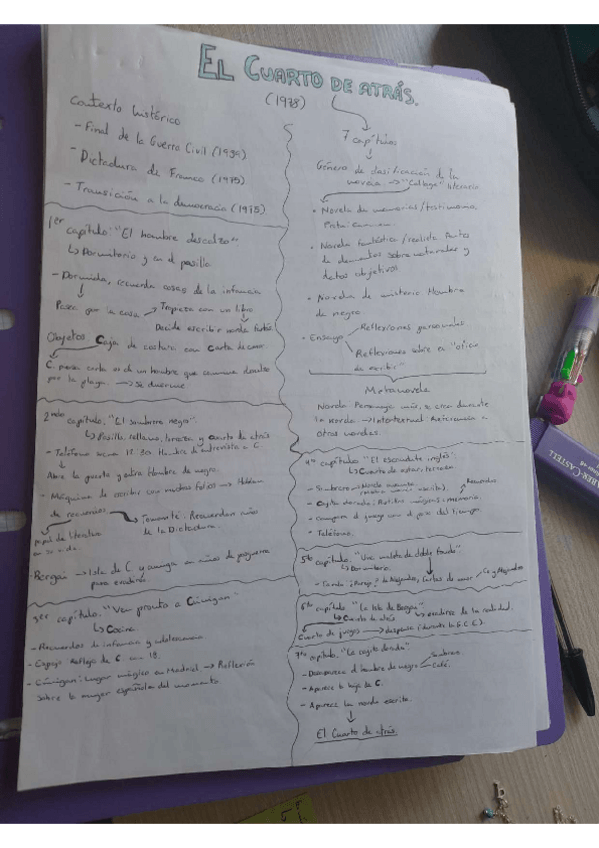 EL CUARTO DE ATRÁS.
(1978)
Contexto histórico
- Final de la Guerra Civil (1939)
- Dictadura de Franco (1975)
- Transición a la democracia (1975)
1er capítulo: "El hombre descalzo"
↳ Dormitorio y en el pasillo
- Dormida, recuerda cosas de la infancia
Pasea por la casa → Tropieza con un libro
Decide escribir novela
Objetos: Caja de costura con Carta de amor.
C. piensa carta es de un hombre que camina descalzo
por la playa. → Se duerme
2ndo capítulo: "El sombrero negro"
↳ Pasillo, terraza y cuarto de atrás
- Teléfono suena 12:30 Hombre entrevista a C.
Abre la puerta y entra Hombre de negro.
- Máquina de escribir con muchos folios → Hablan
de recuerdos.
→ Recuerdan años
de la Dictadura.
papel de literatura
en su vida.
Bergai → Isla de C y amiga en años de
para evadirse.
3er capítulo: "Ven pronto a Cúnigan"
↳ Cocina
- Recuerdos de infancia y adolescencia
- Espejo: Reflejo de C con 18.
- Cúnigan: Lugar mágico en Madrid → Reflexión
sobre la mujer española del momento
7 capítulos
Género de clasificación de la
novela → "Collage" literario
• Novela de memorias/testimonio.
• Novela fantástica/realista
de elementos sobrenaturales y
datos objetivos
• Novela de misterio: Hombre
de negro.
• Ensayo
Reflexiones personales
Reflexiones sobre el "oficio
de escribir"
Metanovela
Novela se crea durante
la novela → Intertextual: Referencia a
otras novelas.
4to capítulo: "El escondite inglés"
↳ Cuarto de estar
- Sombrero →
- Cajita dorada: Recuerdos
- compara el juego con el paso del tiempo.
- Teléfono.
5to capítulo: "Una maleta de doble fondo"
↳ Dormitorio.
de Alejandro, Cartas de amor C. y Alejandro
6to capítulo: "La Isla de Bergai"
↳ Cuarto de atrás → evadirse de la realidad.
Cuarto de juegos → despensa (durante la G.C.E).
7mo capítulo: "La cajita dorada"
- Desaparece el hombre de negro
- Aparece la hija de C.
- Aparece la novela escrita.
El Cuarto de atrás